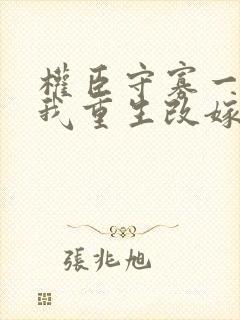 權臣守寡一
我重生改嫁
張兆旭